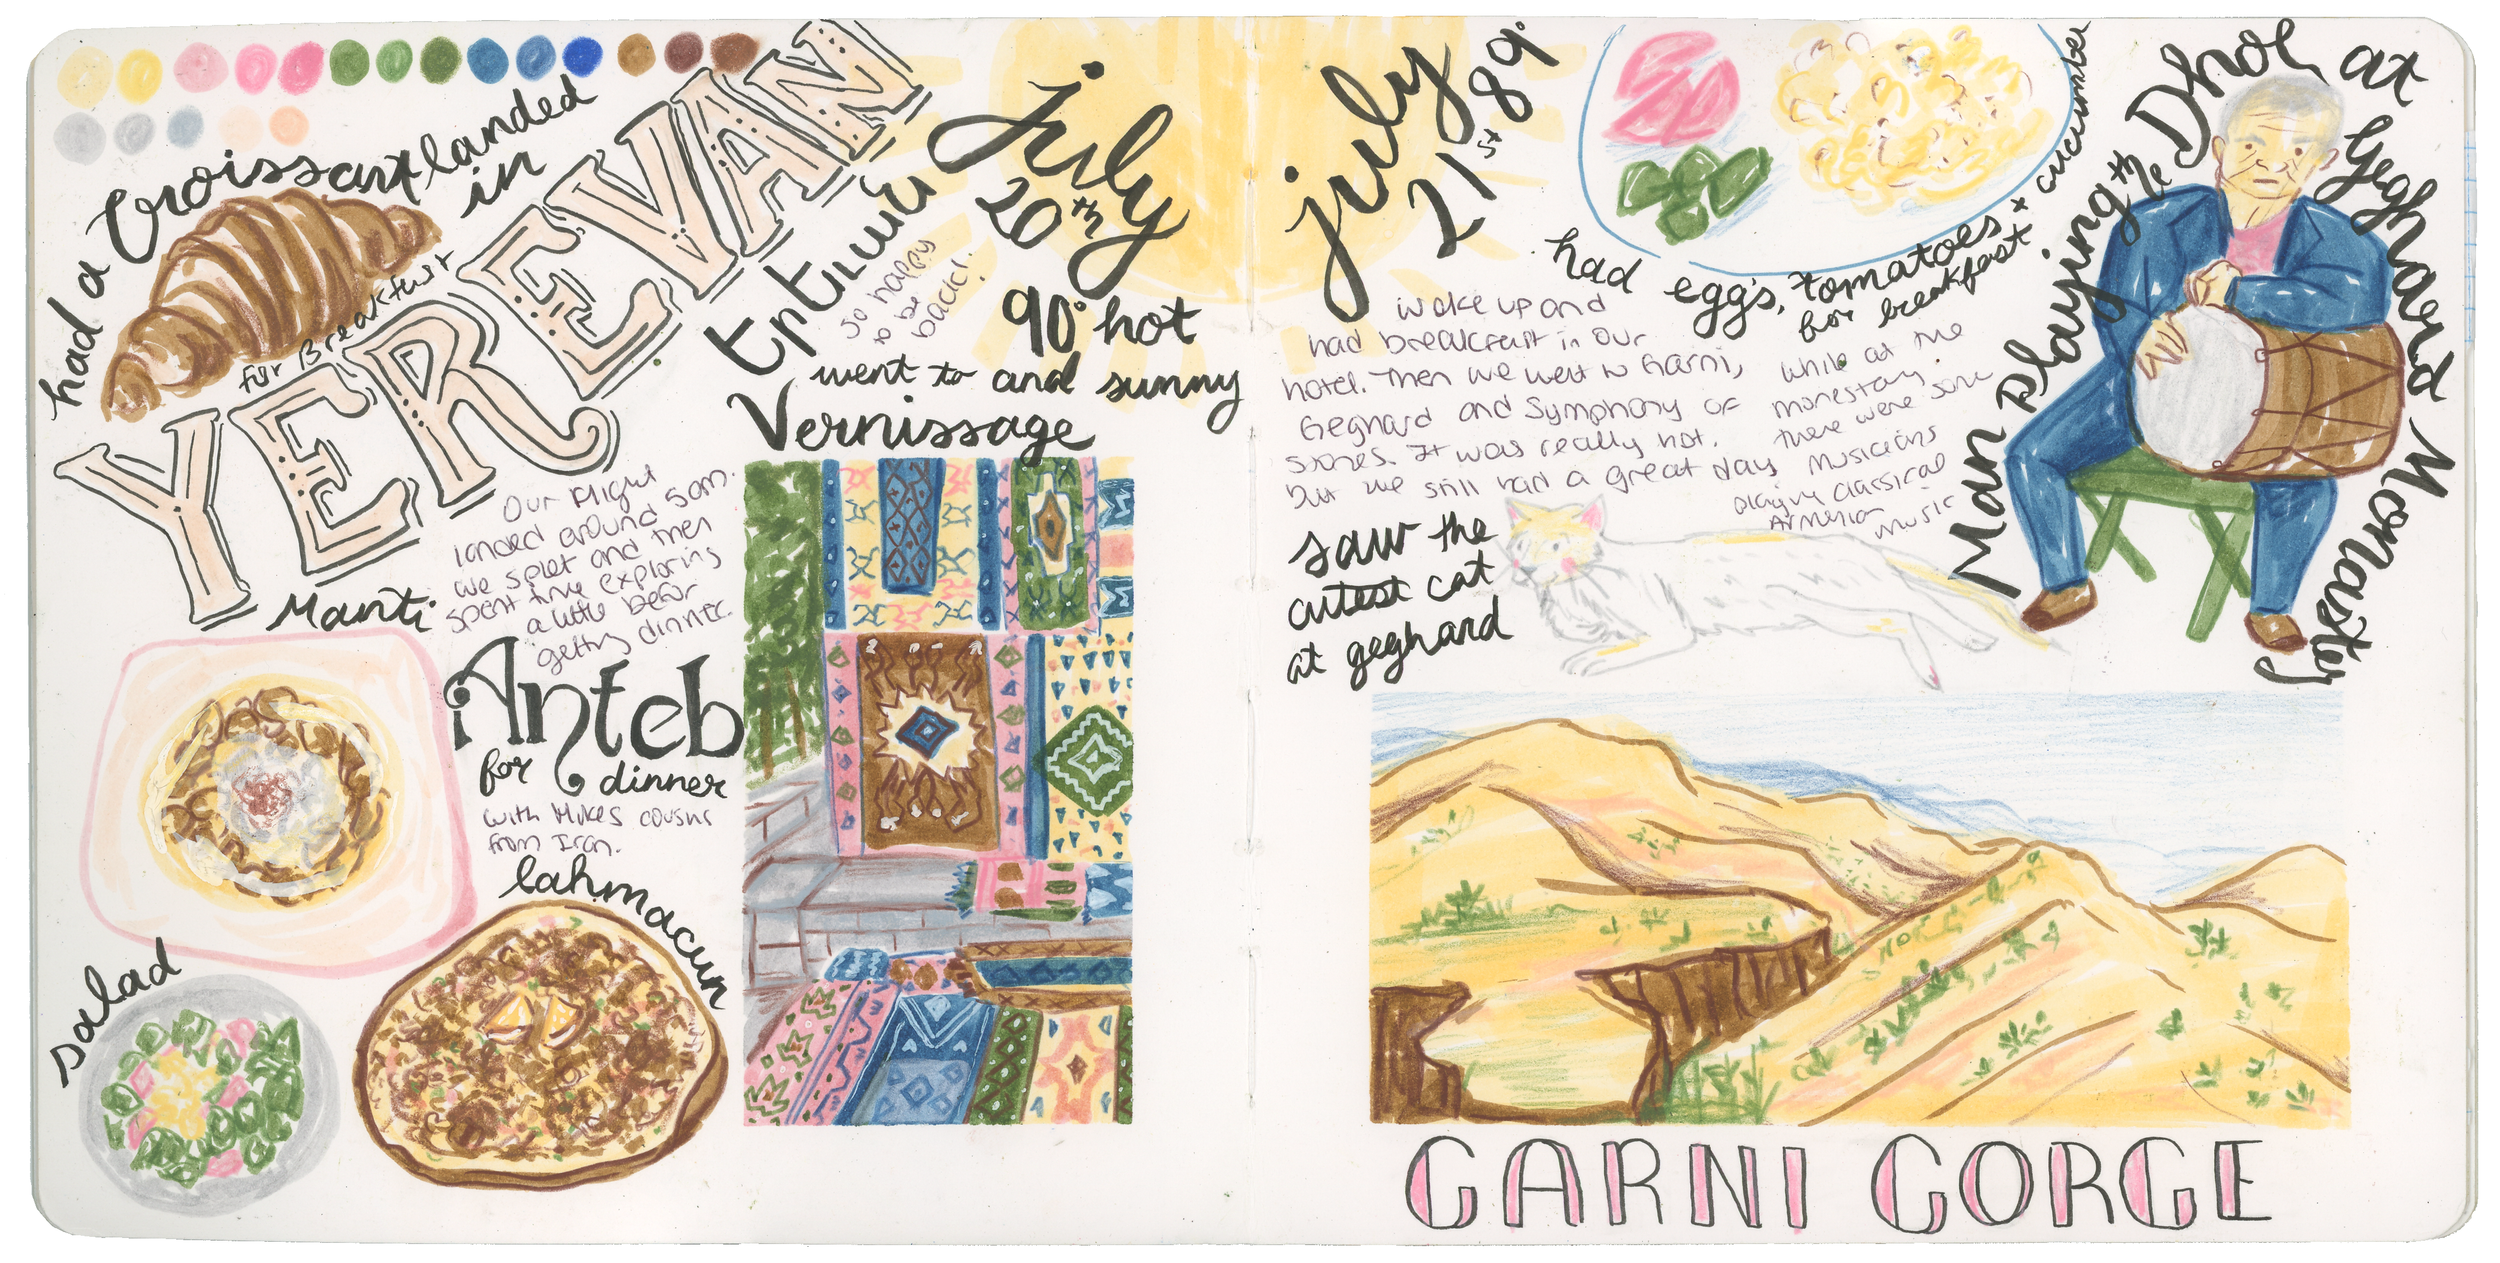 had a Croissant + landed
in
for Breakfast
YEREVAN
Երևան
so happy
to be
back!
july
20th
90° hot
and sunny
went to
Vernissage
Our Flight
landed around 5am.
we splet and then
spent time exploring
a little befor
getting dinner.
Manti
Anteb
for dinner
with Mikes cousins
from Iran.
lahmacun
salad
july
21st
89°
had eggs, tomatoes + cucumber
for breakfast
Woke up and
had breakfast in our
hotel. Then we went to Garni,
Geghard and Symphony of
Stones. It was really hot.
but we still had a great day
while at the
monestary.
there were some
musicians
playing classical
Armenian
music
saw the
cutest cat
at geghard
Man playing the Dhol at Geghard Monastery
GARNI GORGE